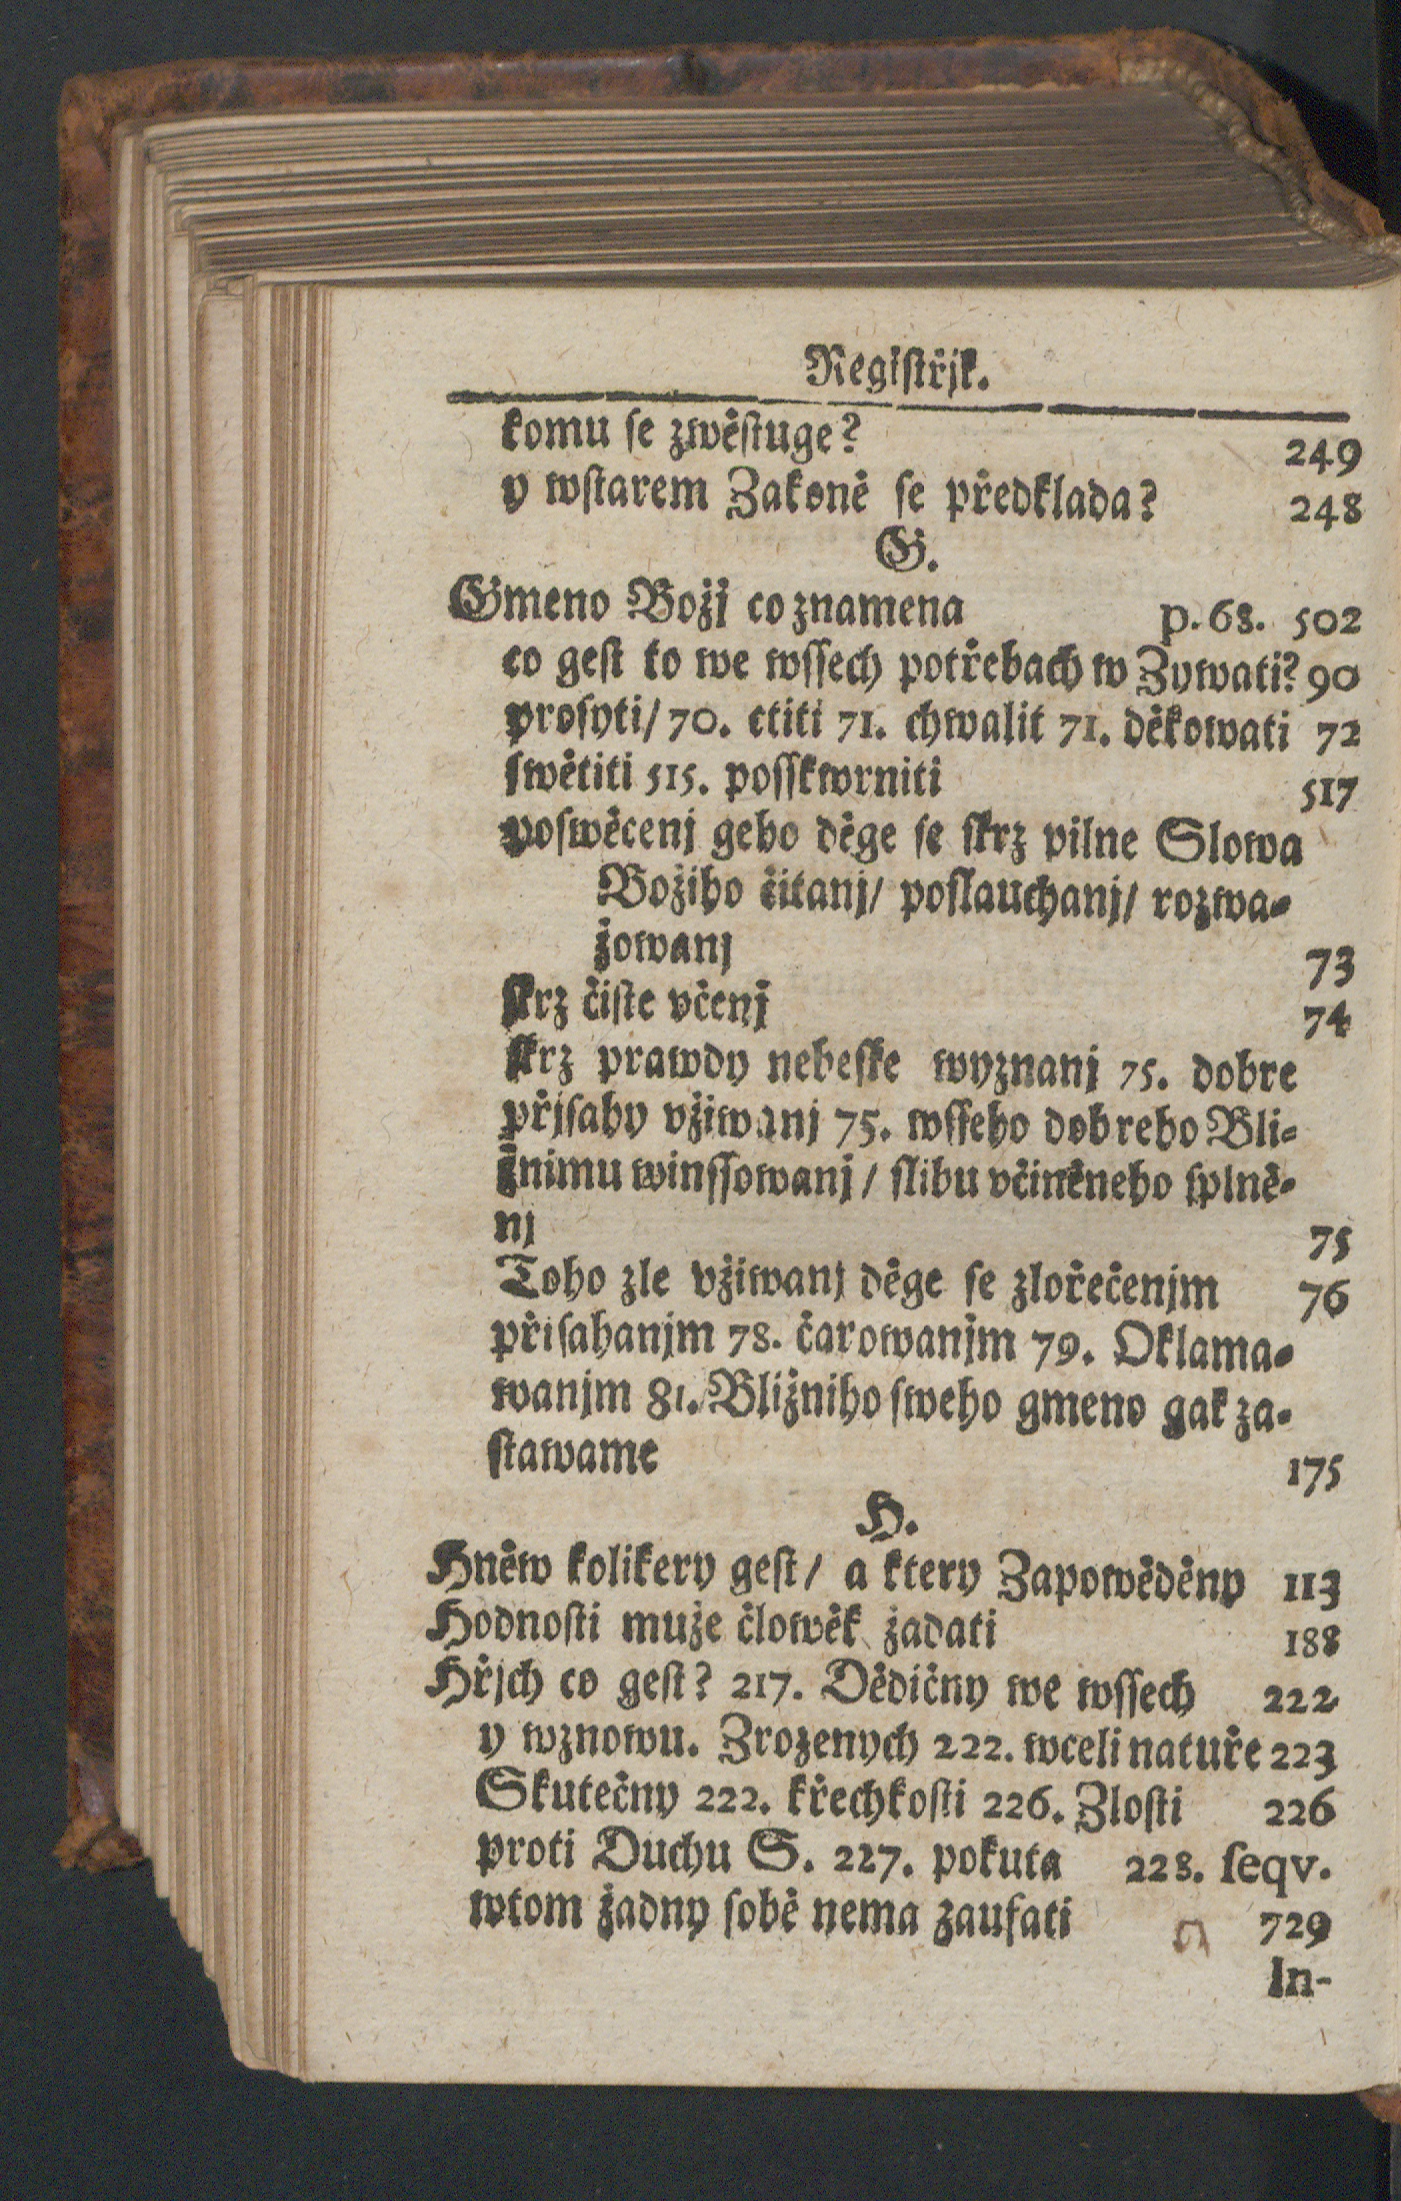 Regiſtřjk.
komu ſe zwěſtuge? 249
y wſtarem Zakoně ſe předklada? 248
G.
Gmeno Božj co znamena p. 68. 502
co geſt to we wſſech potřebach w Zywati? 90
proſyti/ 70. ctiti 71. chwalit 71. děkowati 72
ſwětiti 515. poſſkwrniti 517
poſwěcenj geho děge ſe ſkrz pilne Slowa
Božiho čitanj/ poſlauchanj/ rozwa-
žowanj 73
ſkrz čiſte včenj 74
ſkrz prawdy nebeſke wyznanj 75. dobre
přjſahy vžiwanj 75. wſſeho dobreho Bli-
žnimu winſſowanj/ ſlibu včiněneho ſplně-
nj 75
Toho zle vžiwanj děge ſe zlořečenjm 76
přiſahanjm 78. čarowanjm 79. Oklama-
wanjm 81. Bližniho ſweho gmeno gak za-
ſtawame 175
H.
Hněw kolikery geſt/ a ktery Zapowěděny 113
Hodnoſti muže člowěk žadati 188
Hřjch co geſt? 217. Dědičny we wſſech 222
y wznowu. Zrozenych 222. wceli natuře 223
Skutečny 222. křechkoſti 226. Zloſti 226
proti Duchu S. 227. pokuta 228. ſeqv.
wtom žadny ſobě nema zaufati 729
In-